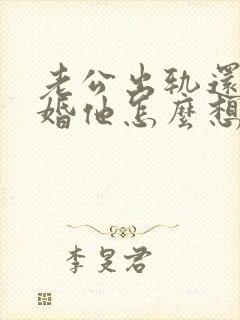 老公出軌還
婚他怎麼想
李旻君